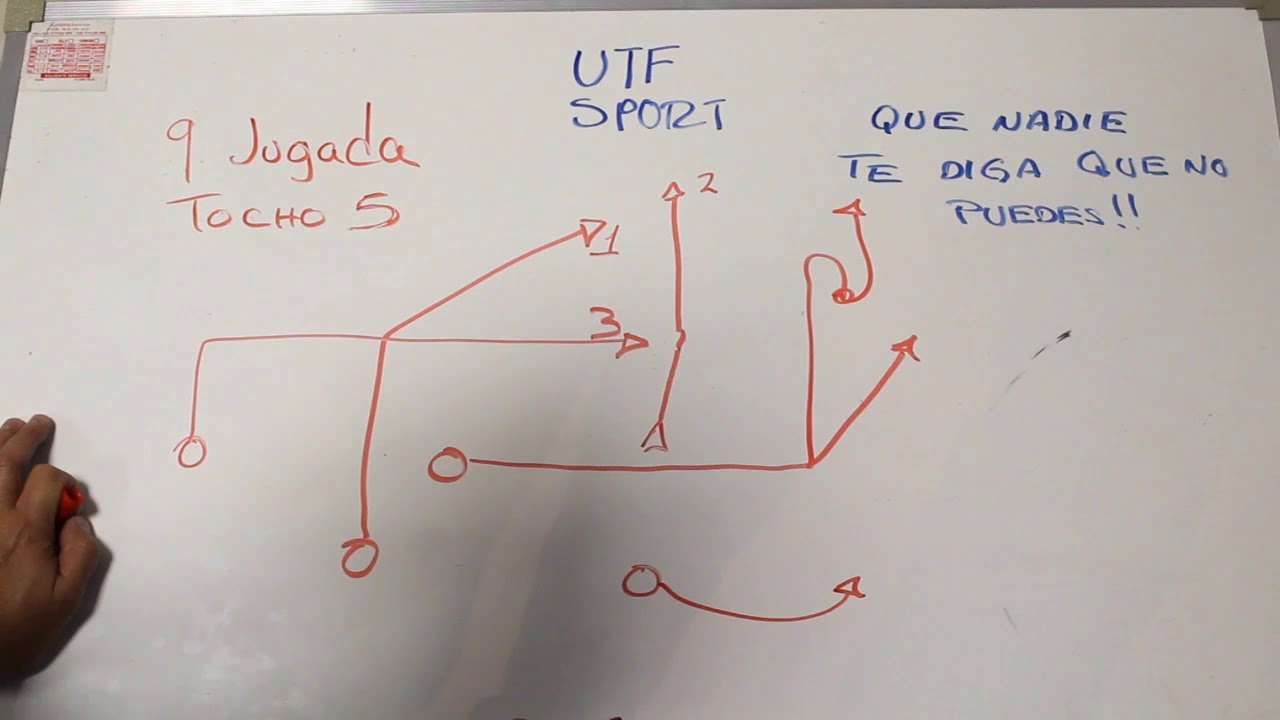 UTF
SPORT
9 Jugada
TOCHO 5
QUE NADIE
TE DIGA QUE NO
PUEDES!!
2
1
3